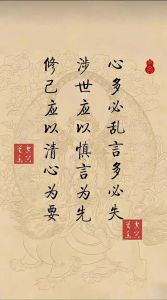 心多必乱言多必失
涉世应以慎言为先
修己应以清心为要